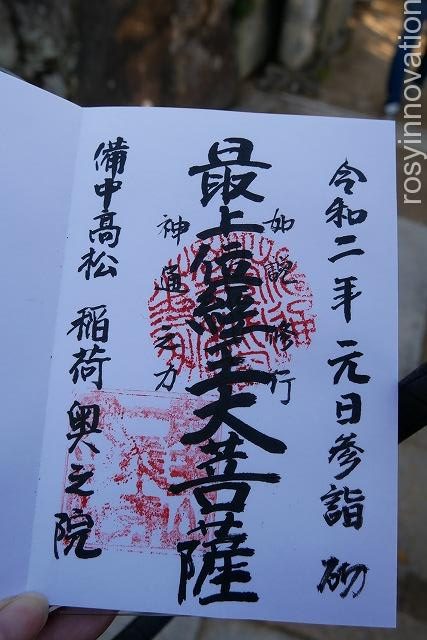 令和二年元日参詣 砌
如説修行
最上位経王大菩薩
神通之力
備中高松 稲荷 奥之院
rosyinnovation